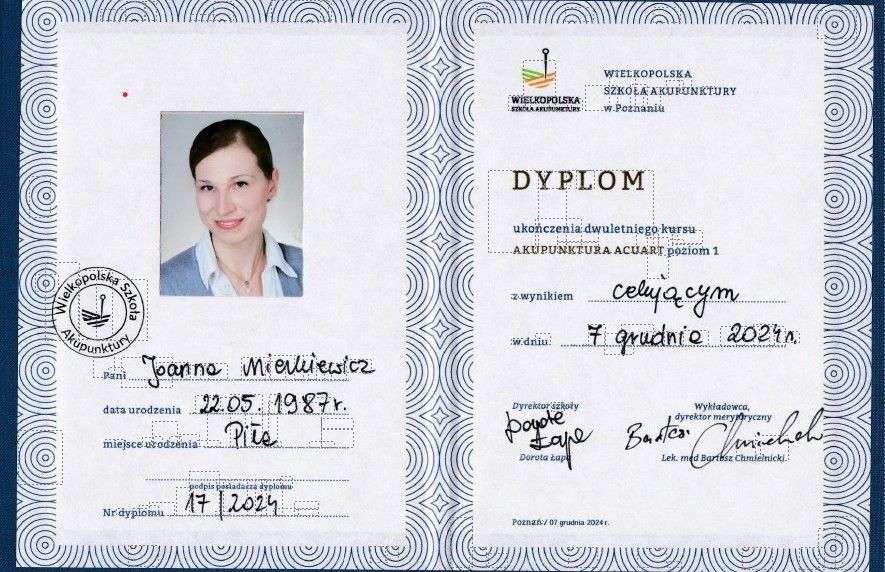 Wielkopolska Szkoła
Akupunktury
Pani Joanna Mierkiewicz
data urodzenia 22.05.1987r.
miejsce urodzenia Piła
podpis posiadacza dyplomu
Nr dyplomu 17/2024
WIELKOPOLSKA
SZKOŁA AKUPUNKTURY
WIELKOPOLSKA
SZKOŁA AKUPUNKTURY
w Poznaniu
DYPLOM
ukończenia dwuletniego kursu
AKUPUNKTURA ACUART poziom 1
z wynikiem celującym
w dniu 7 grudnia 2024r.
Dyrektor szkoły
Dorota Łapa
Dorota Łapa
Wykładowca,
dyrektor merytoryczny
Bartosz Chmielnicki
Lek. med Bartosz Chmielnicki.
Poznań / 07 grudnia 2024 r.